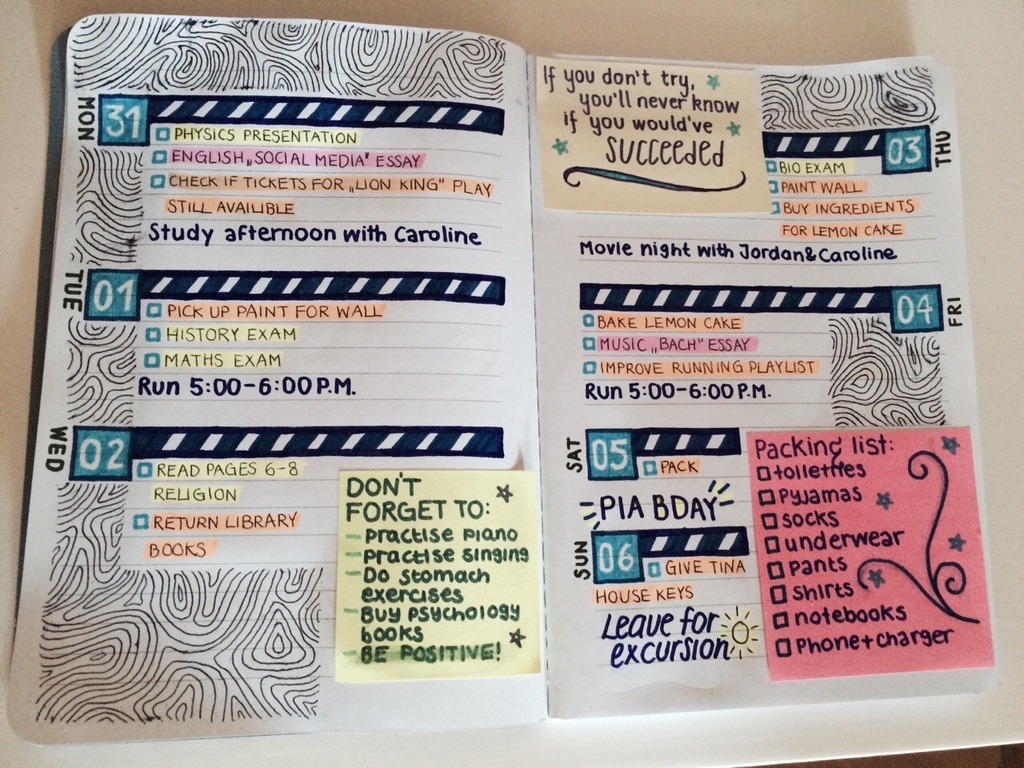 MON
31
PHYSICS PRESENTATION
ENGLISH „SOCIAL MEDIA" ESSAY
CHECK IF TICKETS FOR „LION KING" PLAY
STILL AVAILIBLE
Study afternoon with Caroline
TUE
01
PICK UP PAINT FOR WALL
HISTORY EXAM
MATHS EXAM
Run 5:00-6:00 P.M.
WED
02
READ PAGES 6-8
RELIGION
RETURN LIBRARY
BOOKS
DON'T
FORGET TO:
- practise piano
- practise singing
- Do stomach
exercises
- Buy psychology
books
- BE POSITIVE!
If you don't try,
you'll never know
if you would've
succeeded
THU
03
BIO EXAM
PAINT WALL
BUY INGREDIENTS
FOR LEMON CAKE
Movie night with Jordan & Caroline
FRI
04
BAKE LEMON CAKE
MUSIC „BACH" ESSAY
IMPROVE RUNNING PLAYLIST
Run 5:00-6:00 P.M.
SAT
05
PACK
PIA BDAY
SUN
06
GIVE TINA
HOUSE KEYS
Leave for
excursion
Packing list:
toilettes
pyjamas
socks
underwear
pants
shirts
notebooks
Phone + charger